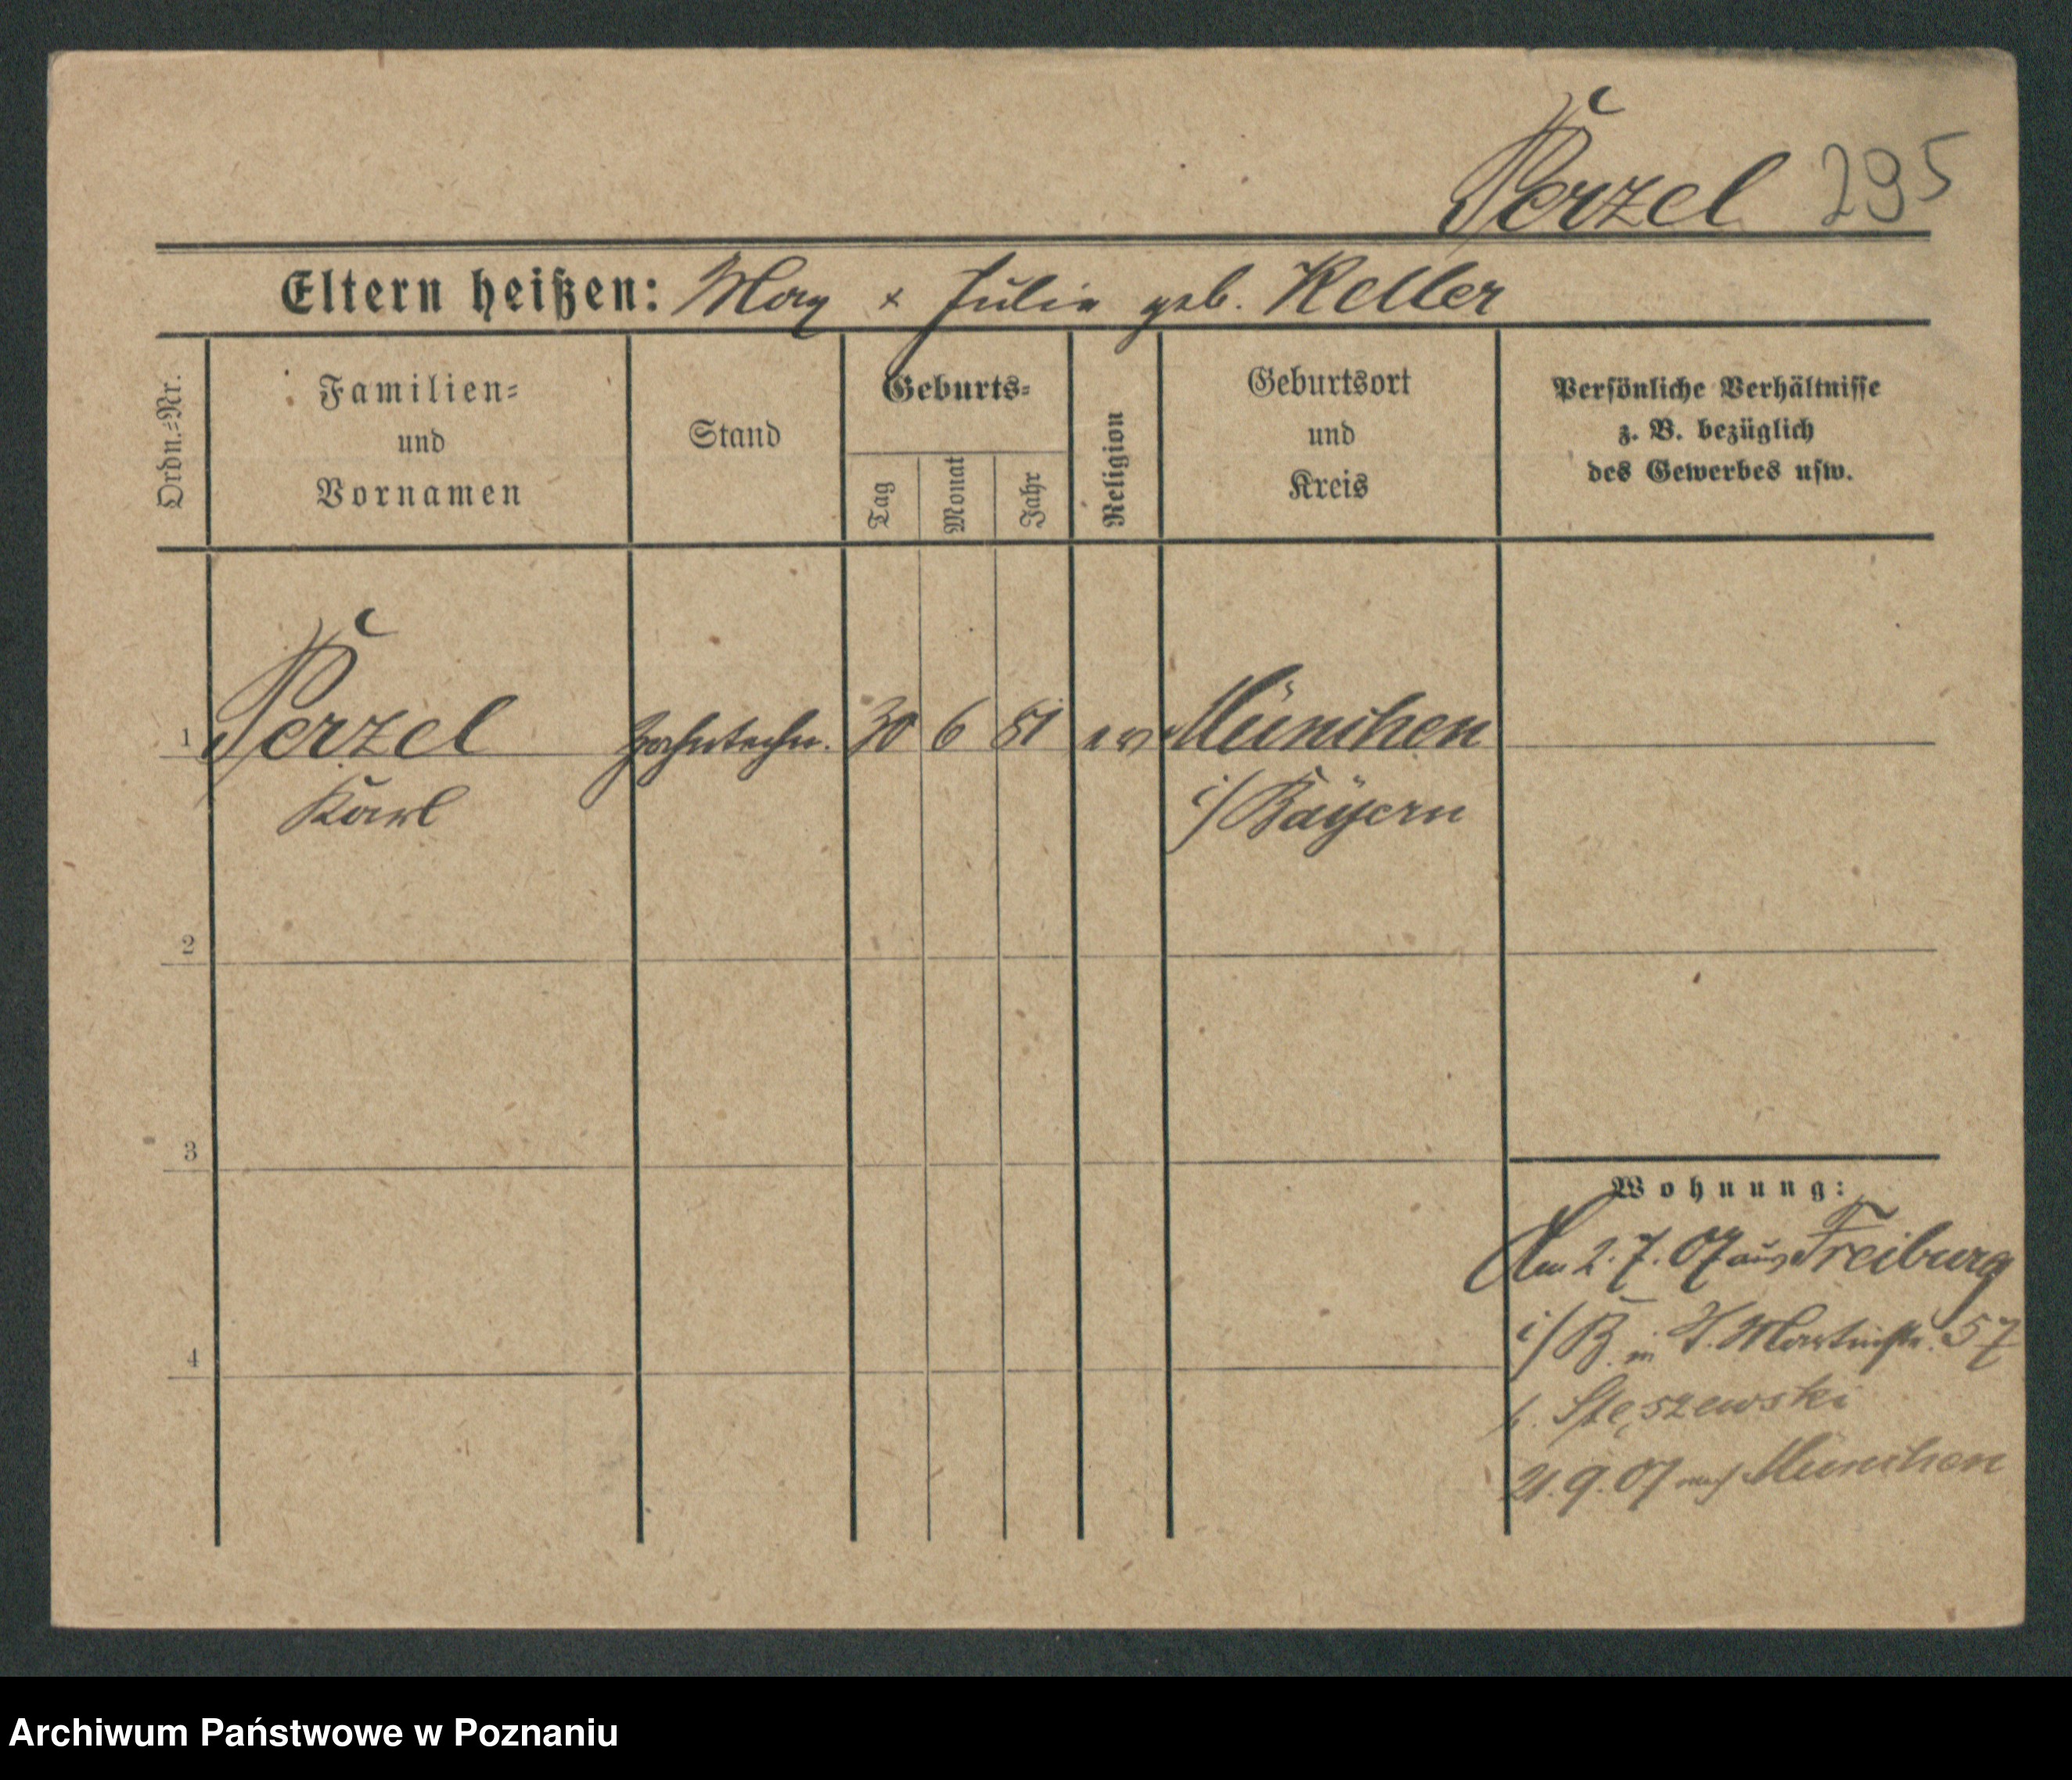 Perzel 295
Eltern heißen: Max + Julie geb. Keller
Ordn.=Nr.
Familien=
und
Vornamen
Stand
Geburts=
Tag
Monat
Jahr
Religion
Geburtsort
und
Kreis
Persönliche Verhältnisse
z. B. bezüglich
des Gewerbes usw.
1 Perzel Zahntechn. 30 6 81 ev München
Karl i/Bayern
2
3
4
Wohnung:
Am 2.7.07 aus Freiburg
i/B. in St. Martinstr. 57
b. Stęszewski
21.9.07 nach München
Archiwum Państwowe w Poznaniu